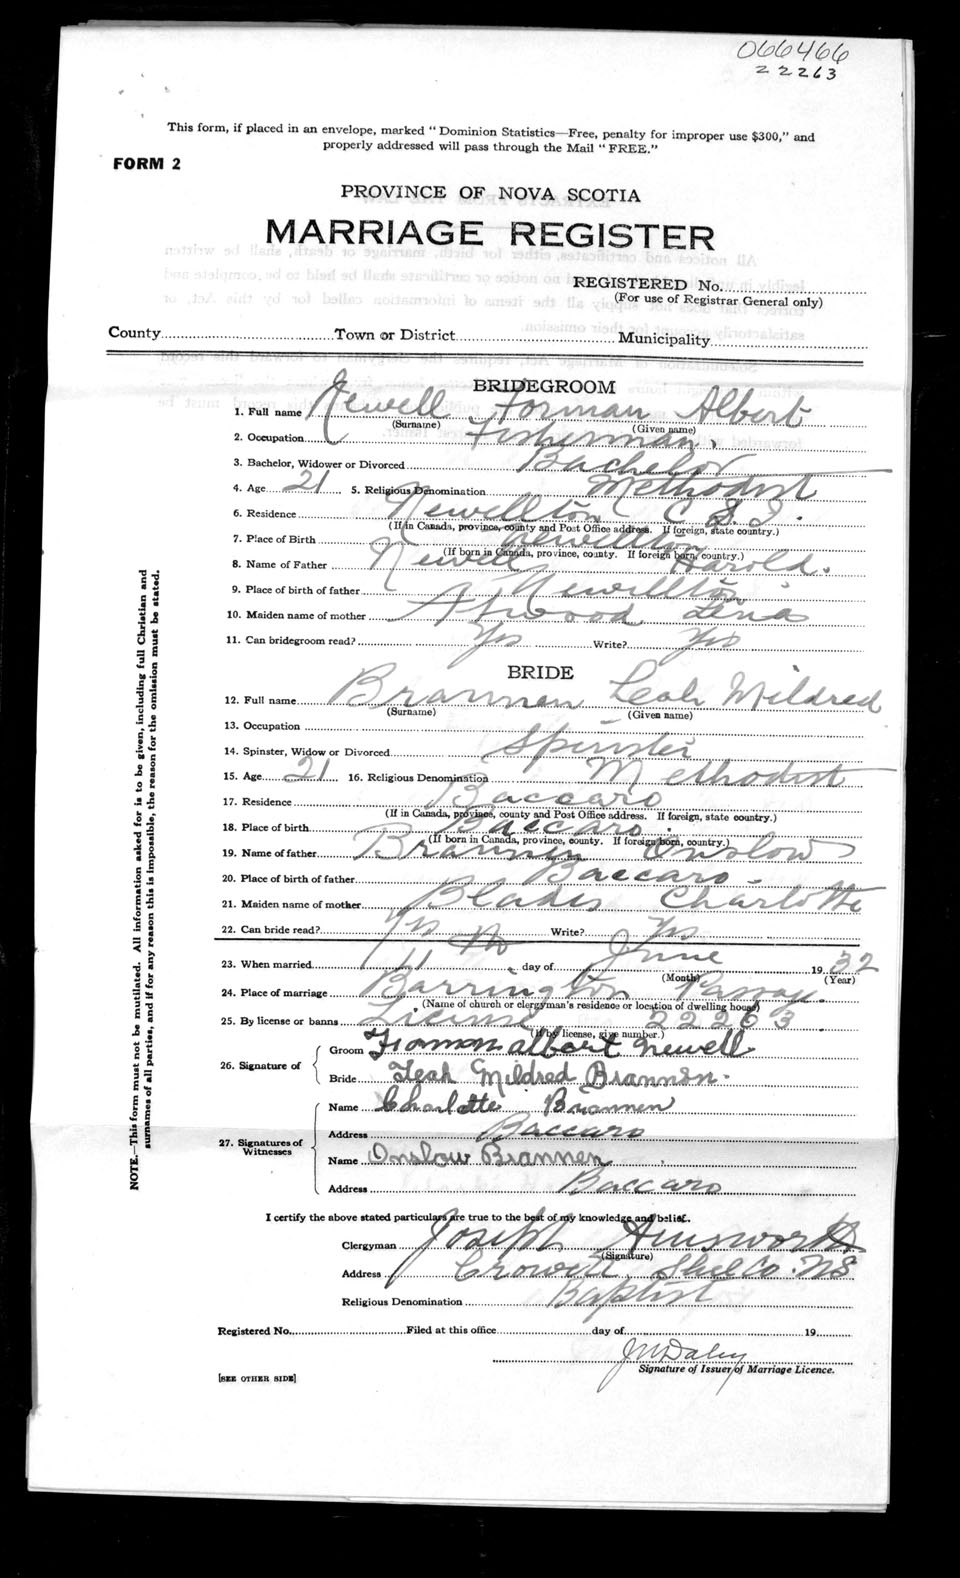 066466
22263
This form, if placed in an envelope, marked "Dominion Statistics—Free, penalty for improper use $300," and
properly addressed will pass through the Mail "FREE."
FORM 2
PROVINCE OF NOVA SCOTIA
MARRIAGE REGISTER
REGISTERED No.
(For use of Registrar General only)
County Town or District Municipality
BRIDEGROOM
1. Full name Newell Forman Albert
(Surname) (Given name)
2. Occupation Fisherman
3. Bachelor, Widower or Divorced Bachelor
4. Age 21 5. Religious Denomination Methodist
6. Residence Newellton C.S.I.
(If in Canada, province, county and Post Office address. If foreign, state country.)
7. Place of Birth Newellton
(If born in Canada, province, county. If foreign born, country.)
8. Name of Father Newell Harold.
9. Place of birth of father Newellton
10. Maiden name of mother Atwood Lina
11. Can bridegroom read? Yes Write? Yes
BRIDE
12. Full name Brannen Leah Mildred
(Surname) (Given name)
13. Occupation
14. Spinster, Widow or Divorced Spinster
15. Age 21 16. Religious Denomination Methodist
17. Residence Baccaro
(If in Canada, province, county and Post Office address. If foreign, state country.)
18. Place of birth Baccaro.
(If born in Canada, province, county. If foreign born, country.)
19. Name of father Brannen Onslow
20. Place of birth of father Baccaro
21. Maiden name of mother Blades Charlotte
22. Can bride read? Yes Write? Yes
23. When married 11 day of June 1932
(Month) (Year)
24. Place of marriage Barrington Passage
(Name of church or clergyman's residence or location of dwelling house)
25. By license or banns License 22263
(If by license, give number.)
26. Signature of
Groom Forman albert newell
Bride Leah Mildred Brannen.
27. Signatures of Witnesses
Name Charlotte Brannen
Address Baccaro
Name Onslow Brannen
Address Baccaro
I certify the above stated particulars are true to the best of my knowledge and belief.
Clergyman Joseph Ainsworth
(Signature)
Address Crowell, Shel Co. NS
Religious Denomination Baptist
Registered No. Filed at this office day of 19
Signature of Issuer of Marriage Licence.
[SEE OTHER SIDE]
NOTE.—This form must not be mutilated. All information asked for is to be given, including full Christian and
surnames of all parties, and if for any reason this is impossible, the reason for the omission must be stated.